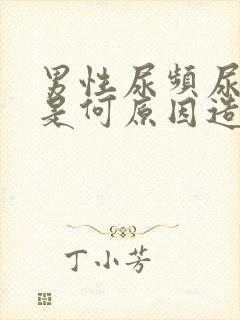 男性尿频尿
是何原因造
丁小芳